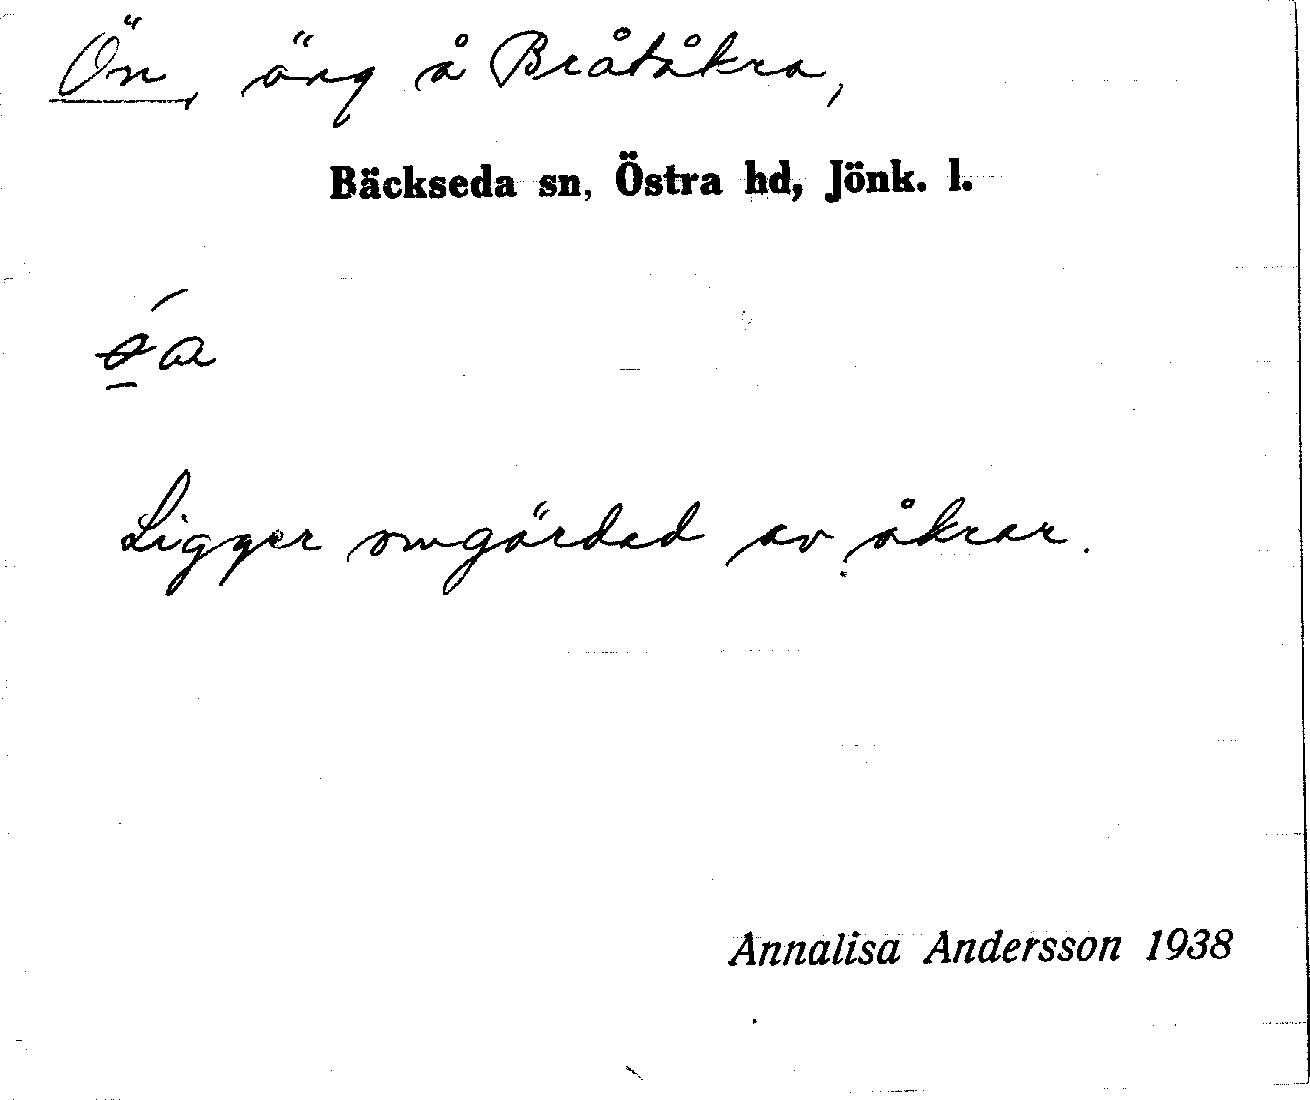 Ön, äng å Bråtåkra,
Bäckseda sn, Östra hd, Jönk. l.
Ligger omgärdad av åkrar.
Annalisa Andersson 1938